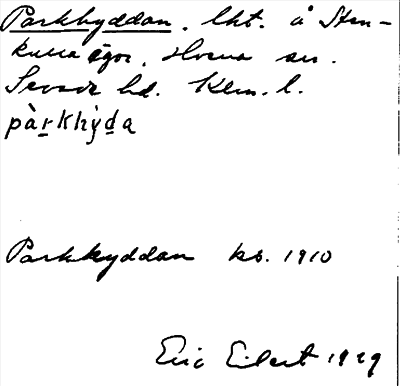 Parkhyddan. lht. å Sten-
kulla ägor. Hovna sn.
Sevede hd. Klm. l.
pàṟkhỳḏa
Parkhyddan kb. 1910
Eric Eilert 1929